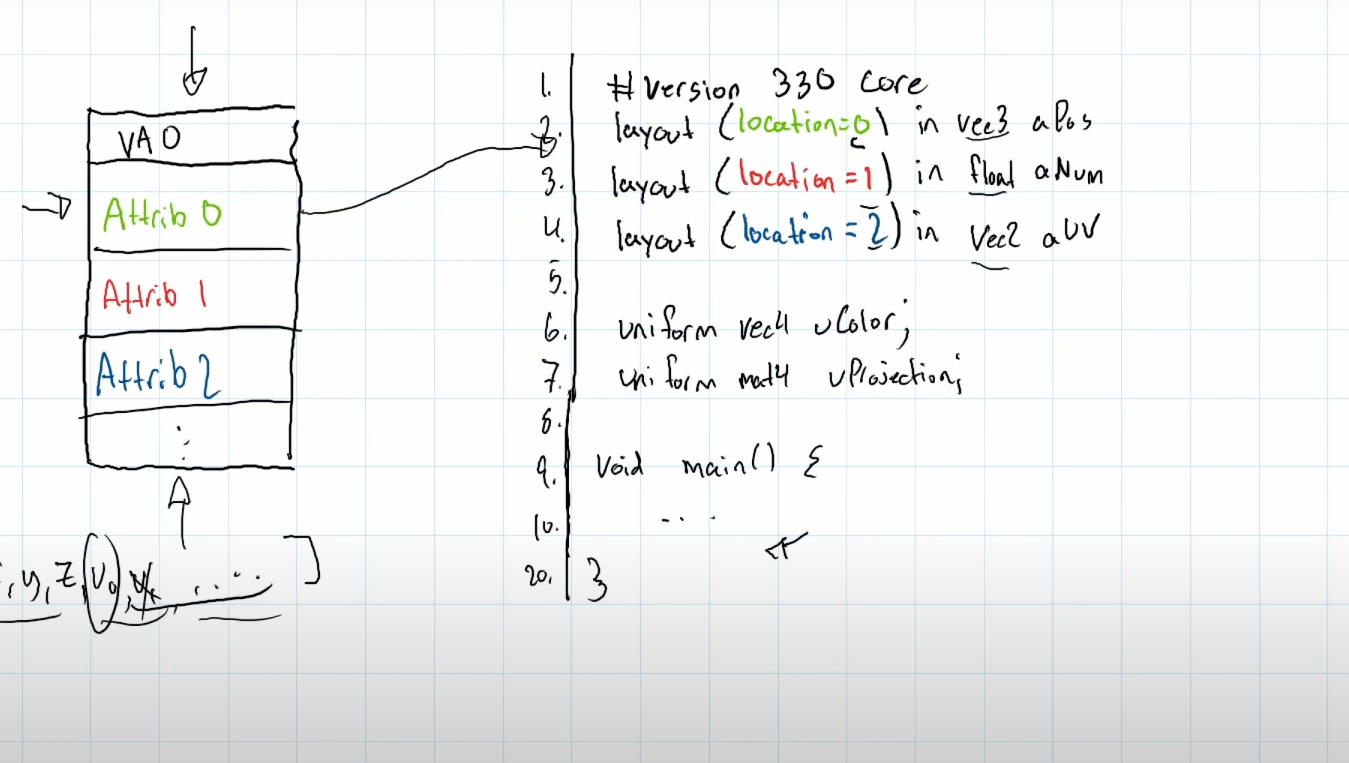 VAO
Attrib 0
Attrib 1
Attrib 2
⋮
, y, z, v₀,
]
1. # version 330 core
2. layout (location=0) in vec3 aPos
3. layout (location=1) in float aNum
4. layout (location=2) in vec2 aUV
5.
6. uniform vec4 uColor;
7. uniform mat4 uProjection;
8.
9. void main() {
10. ...
20. }